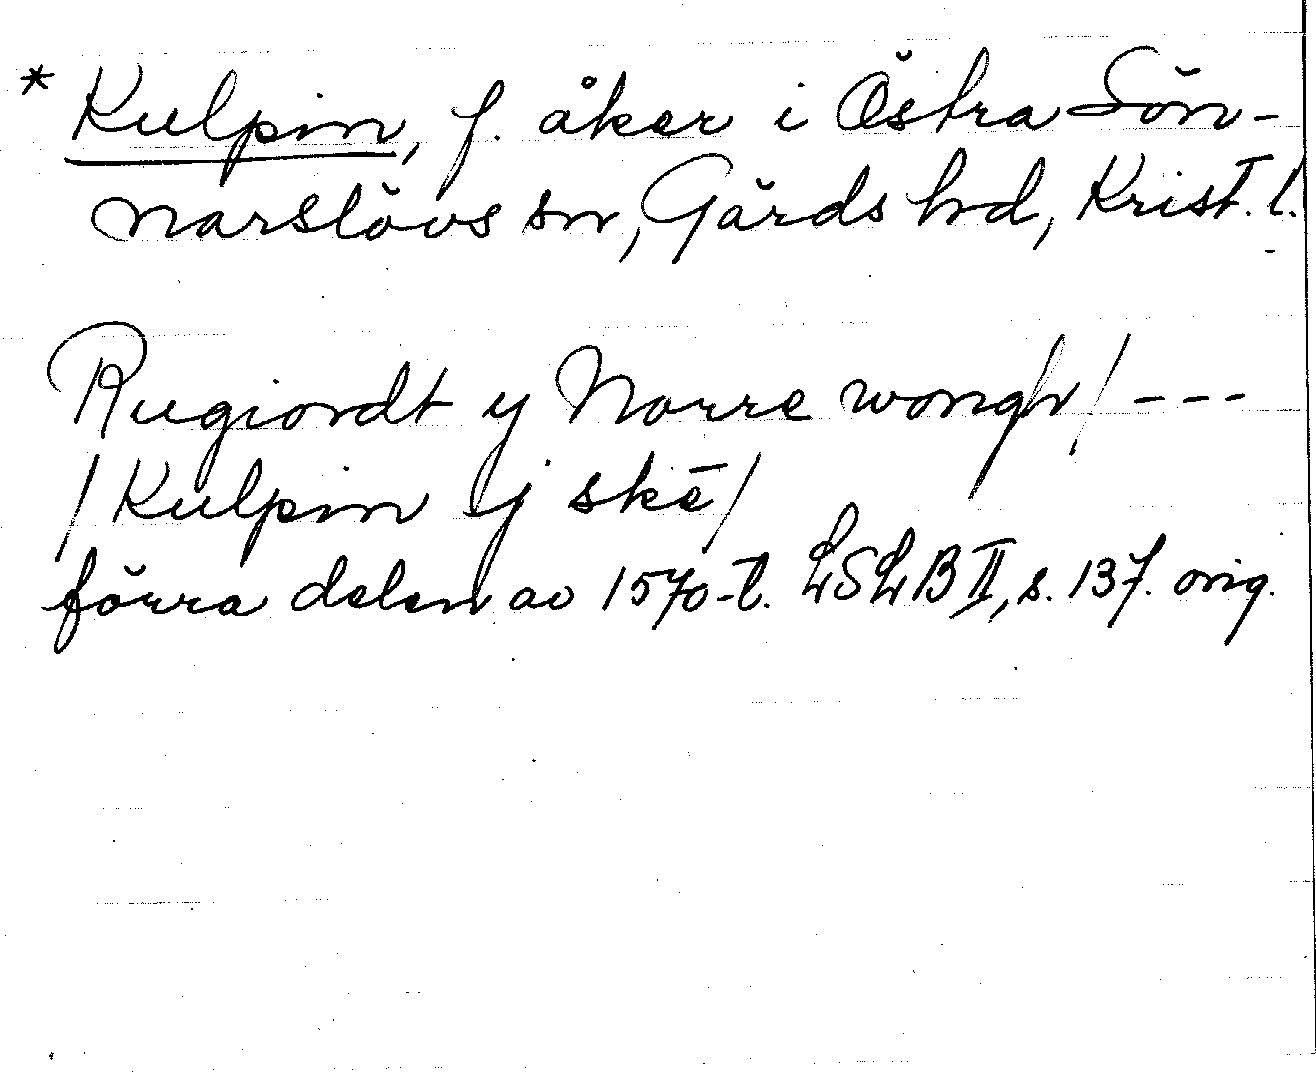 * Kulpin, f. åker i Östra Sön-
narslövs sn, Gärds hd, Krist. l.
Rugiordt y Norre wongh / ---
/ Kulpin ij skē /
förra delen av 1570-t. LSLB II, s. 137. orig.